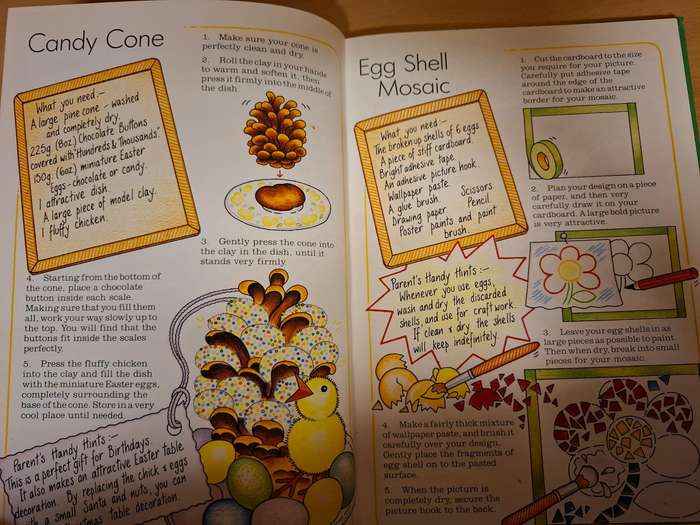 Candy Cone
What you need:-
A large pine cone - washed
and completely dry.
225g. (8oz) Chocolate Buttons
covered with "Hundreds & Thousands"
150g. (6oz) miniature Easter
Eggs - chocolate or candy.
1 attractive dish.
A large piece of model clay.
1 fluffy chicken.
1. Make sure your cone is
perfectly clean and dry.
2. Roll the clay in your hands
to warm and soften it, then
press it firmly into the middle of
the dish.
3 Gently press the cone into
the clay in the dish, until it
stands very firmly.
4. Starting from the bottom of
the cone, place a chocolate
button inside each scale.
Making sure that you fill them
all, work your way slowly up to
the top. You will find that the
buttons fit inside the scales
perfectly.
5. Press the fluffy chicken
into the clay and fill the dish
with the miniature Easter eggs,
completely surrounding the
base of the cone. Store in a very
cool place until needed.
Parent's Handy Hints :-
This is a perfect gift for Birthdays.
It also makes an attractive Easter table
decoration. By replacing the chick & eggs
with a small Santa and nuts, you can
table decoration.
Egg Shell
Mosaic
What you need :-
The broken up shells of 6 eggs
A piece of stiff cardboard.
Bright adhesive tape.
An adhesive picture hook.
Wallpaper paste.
A glue brush. Scissors
Drawing paper Pencil.
Poster paints and paint
brush.
Parent's Handy Hints :-
Whenever you use eggs,
wash and dry the discarded
shells, and use for craft work.
If clean & dry, the shells
will keep indefinitely.
1. Cut the cardboard to the size
you require for your picture.
Carefully put adhesive tape
around the edge of the
cardboard to make an attractive
border for your mosaic.
2. Plan your design on a piece
of paper, and then very
carefully draw it on your
cardboard. A large bold picture
is very attractive.
3. Leave your egg shells in as
large pieces as possible to paint.
Then when dry, break into small
pieces for your mosaic.
4. Make a fairly thick mixture
of wallpaper paste, and brush it
carefully over your design.
Gently place the fragments of
egg shell on to the pasted
surface.
5. When the picture is
completely dry, secure the
picture hook to the back.